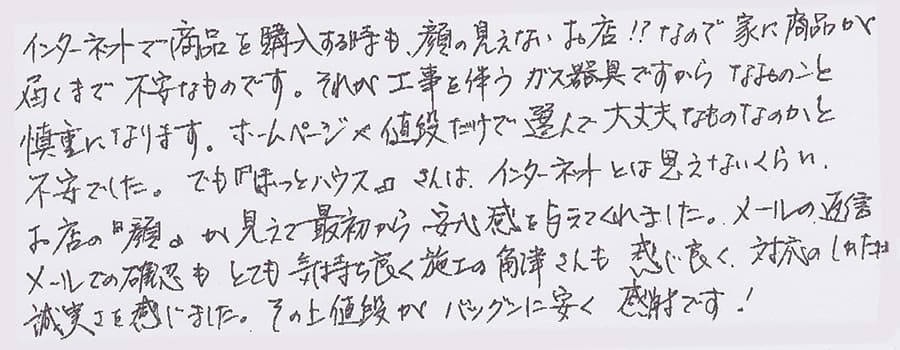 インターネットで商品を購入する時も、顔の見えないお店!?なので家に商品が
届くまで不安なものです。それが工事を伴うガス器具ですからなおのこと
慎重になります。ホームページや値段だけで選んで大丈夫なものなのかと
不安でした。でも『ほっとハウス』さんは、インターネットとは思えないくらい、
お店の『顔』が見えて最初から安心感を与えてくれました。メールの返信
メールでの確認もとても気持ち良く施工の角津さんも感じ良く、対応のしかたに
誠実さを感じました。その上値段がバツグンに安く感謝です!